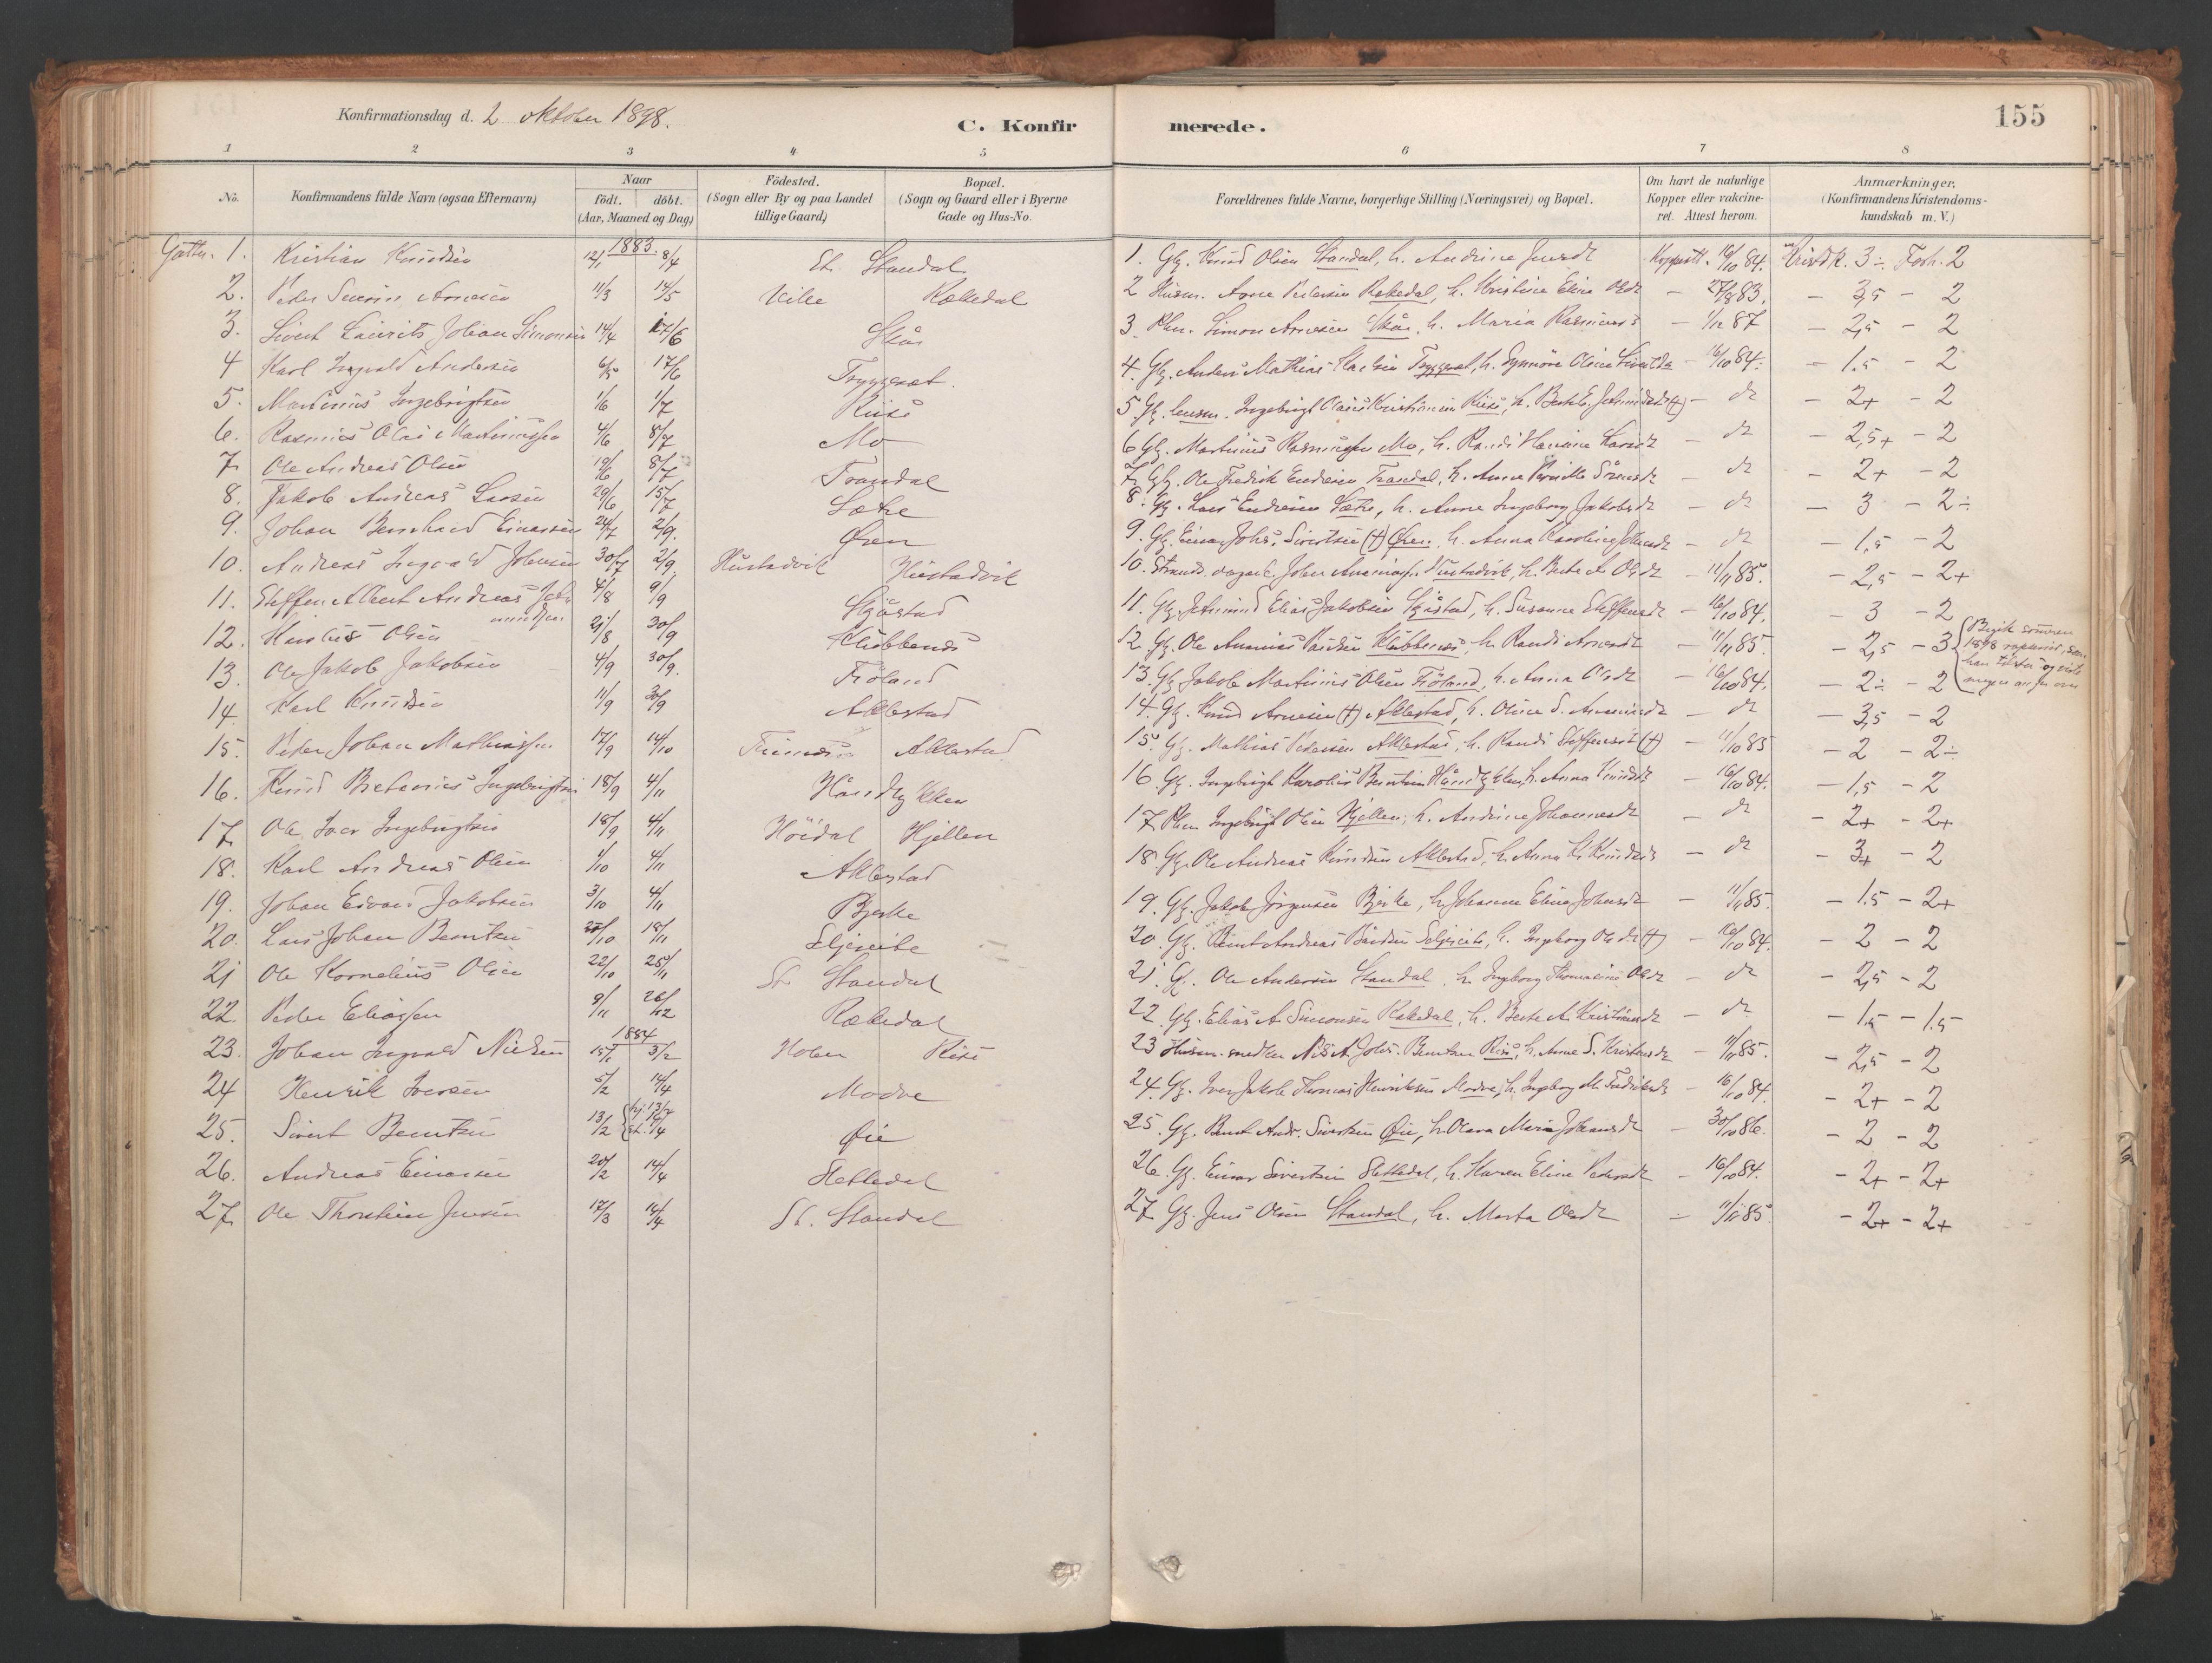 155
Konfirmationsdag d. 2 oktober 1898.
C. Konfirmerede.
1 2 3 4 5 6 7 8
No.
Konfirmandens fulde Navn (ogsaa Efternavn)
Naar
födt. döbt.
(Aar, Maaned og Dag)
Födested.
(Sogn eller By og paa Landet
tillige Gaard)
Bopæl.
(Sogn og Gaard eller i Byerne
Gade og Hus-No.
Forældrenes fulde Navne, borgerlige Stilling (Næringsvei) og Bopæl.
Om havt de naturlige
Kopper eller vakcine-
ret. Attest herom.
Anmærkninger.
(Konfirmandens Kristendoms-
kundskab m. V.)
1883.
Gutter. 1. Kristian Knudsen 12/1 8/4 St. Standal 1. Gbr. Knud Olsen Standal, h. Andrine Jensdr Koppeatt. 16/10 84. Kristdk. 3÷ Forh. 2
2. Peder Severin Arnesen 11/3 14/5 Vike Rekkedal 2 Husm. Arne Pedersen Rekkedal, h. Kristine Eline Olsdr - 27/8 83. - 3,5 - 2
3. Sivert Laurits Johan Simonsen 14/4 17/6 Skår 3. Simon Arnesen Skår, h. Maria Rasmusd - 1/12 87 - 2,5 - 2
4 Karl Ingvald Andersen 6/5 17/6 Tryggeset. 4. Gbr. Anders Mathias Tryggeset, h. Synnöve Oline - 16/10 84. - 1.5 - 2
5. Martinus Ingebrigtsen 1/6 1/7 Riise 5 Ingebrigt Claus Kristiansen Riise, h. Berthe (†) - do - 2+ - 2
6. Rasmus Olai Martinussen 4/6 8/7 Mo 6 Gbr. Martinus Rasmussen Mo, h. Randi - do - 2,5+ - 2
7. Ole Andreas Olsen 19/6 8/7 Trandal 7. Gbr. Ole Fredrik Endresen Trandal, h. Anna Pernille - do - 2+ - 2
8. Jakob Andreas Larsen 29/6 15/7 Sætre 8. Gbr. Lars Endresen Sætre, h. Anne Ingeborg Jakobsdr - do - 3 - 2÷
9. Johan Bernhard Einarsen 24/7 2/9. Øren 9. Gbr. Einar Johs. Sivertsen (†) Øren, h. Anna Karoline - do - 1,5 - 2
10. Andreas Ingvald Johnsen 30/7 2/9 Hustadvik Hustadvik 10. Strands. Johan Hustadvik, h. Berte A. Olsdr - 11/11 85. - 2,5 - 2+
11. Steffen Albert Andreas 4/8 9/9 Skjåstad 11. Gbr. Elias Jakobsen Skjåstad, h. Susanne Steffensdr - 16/10 84. - 3 - 2
12. Olsen 21/8 30/9 Klubbenes 12 Gbr. Ole Ananias Klubbenes, h. Randi Arnesdr - 11/11 85. - 2,5 - 3
1898
13. Ole Jakob Jakobsen 4/9 30/9. Fröland 13. Gbr. Jakob Martinus Olsen Fröland, h. Anna Olsdr - 16/10 84. - 2÷ - 2
14. Karl Knudsen 11/9 30/9 Aklestad 14. Gbr. Knud Arnesen (†) Aklestad, h. Oline - do - 3,5 - 2
15. Peder Johan Mathiassen 17/9 14/10 Aklestad 15. Gbr. Mathias Pedersen Aklestad, h. Randi Steffensdr (†) - 11/10 85 - 2 - 2÷
16. Knud Ingebrigtsen 18/9 4/11 16. Gbr. Ingebrigt Karolus Berntsen h. Anna Knudsdr - 16/10 84. - 1,5 - 2
17. Ole Iver Ingebrigtsen 18/9 4/11 Höidal Hjellen 17 Ingebrigt Olsen Hjellen, h. Andrine Johannesdr - do - 2+ - 2+
18. Karl Andreas Olsen 1/10 4/11 Aklestad 18. Gbr. Ole Andreas Knudsen Aklestad, h. Anna K. Knudsdr - do - 3+ - 2
19. Johan Edvard Jakobsen 3/10 4/11 Bjerke 19. Gbr. Jakob Jörgensen Bjerke, h. Johanne Elina Johnsdr - 11/11 85. - 1.5 - 2+
20. Lars Johan Berntsen 18/11 Seljeseite 20. Gbr. Bernt Andreas Bårdsen Seljeseite, h. Ingeborg Olsdr (†) - 16/10 84. - 2 - 2
21 Ole Kornelius Olsen 22/10 25/11 St. Standal 21. Gbr. Ole Andersen Standal, h. Ingeborg Thomasine Olsdr - do - 2,5 - 2
22. Peder Eliassen 9/11 26/12 Rekkedal 22. Gbr. Elias A. Simonsen Rekkedal, h. Berte A. - do - 1.5 - 1.5
1884
23. Johan Ingvald Nilsen 15/1 3/2 Holen Riise 23 Husm. Nils A. Johs. Berntsen Riise, h. Anne S. - 11/11 85. - 2,5 - 2
24 Henrik Iversen 5/2 14/4 Modve 24. Gbr. Iver Jakob Thomas Henriksen Modve, h. Ingeborg M. - 16/10 84. - 2+ - 2
25. Sivert Berntsen 13/2 hj. 13/2 st. 14/4 Øie 25. Gbr. Bernt Andr. Sivertsen Øie, h. Olava Maria Johansdr - 30/10 86. - 2 - 2
26. Andreas Einarsen 20/2 14/4 Slettedal 26. Gbr. Einar Sivertsen Slettedal, h. Karen Eline Pedersdr - 16/10 84. - 2+ - 2+
27. Ole Thorstein Jensen 17/3 14/4 St. Standal 27. Gbr. Jens Olsen Standal, h. Marta Olsdr - 11/11 85. - 2+ - 2+